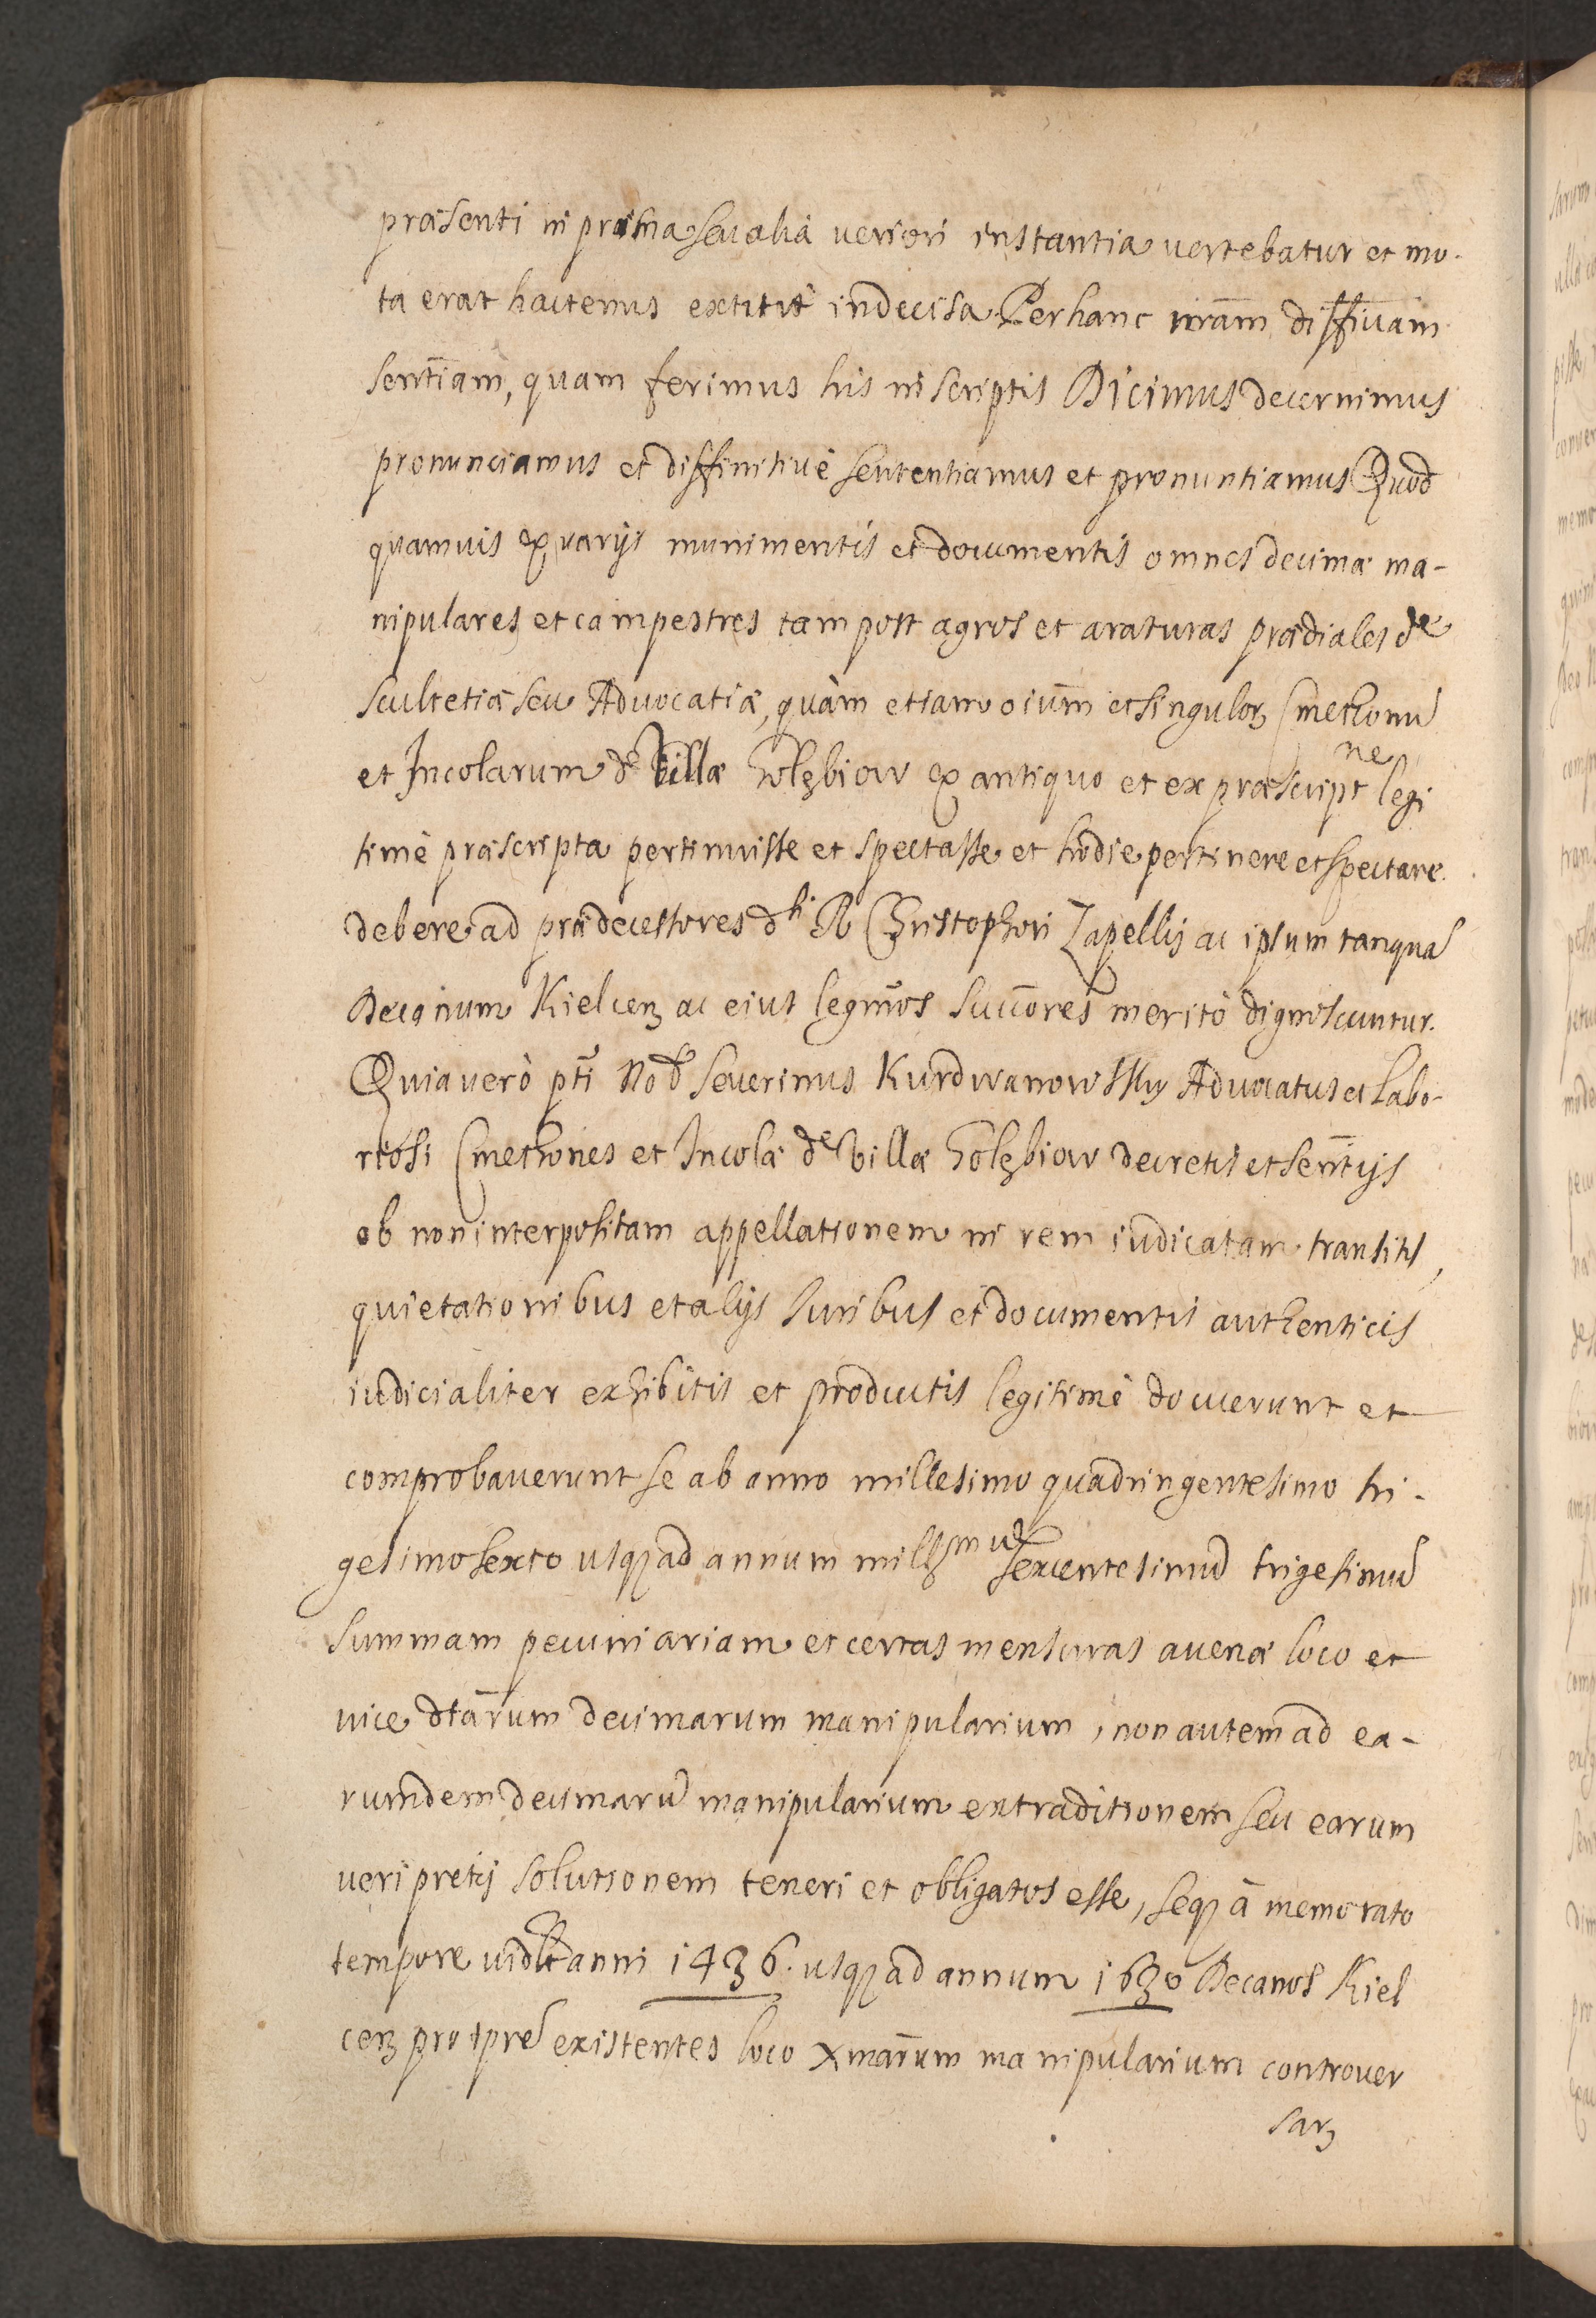 præsenti in prima seu alia veriori instantia vertebatur et mo-
ta erat hactenus extitit indecisa. Per hanc nr̄am diffi̅uam
sent̄iam, quam ferimus his in scriptis Dicimus decernimus
pronunciamus et diffinitiuè sententiamus et pronuntiamus Quod
quamuis ex varijs munimentis et documentis omnes decimæ ma-
nipulares et campestres tam post agros et araturas prædiales de
scultetiæ seu Aduocatiæ, quàm etiam oium̄ et singuloꝝ Cmethonū
et Incolarum de Villæ Golębiow ex antiquo et ex præscript^ne legi
timè præscripta pertinuisse et spectasse et hodie pertinere et spectare
debere ad prædecessores d^ti R Christophori Zapellij ac ipsum tanquā
Decanum Kielceń ac eius legit̄mos succ̄ores meritò dignoscuntur.
Quia verò pt̄i Nob Seuerinus Kurdwanowsky Aduocatus et Labo-
riosi Cmethones et Incolæ de Villæ Golębiow decretis et sent̄ijs
ob non interpositam appellationem in rem iudicatam transitis,
quietationibus et alijs Iuribus et documentis authenticis
iudicialiter exhibitis et productis legitimè docuerunt et
comprobauerunt se ab anno millesimo quadringentesimo tri-
gesimo sexto usqꝫ ad annum mill^mum sexcentesimū trigesimū
summam pecuniariam et certas mensuras auenæ loco et
vice dt̄arum decimarum manipularium, non autem ad ea-
rumdem decimarū manipularium extraditionem seu earum
veri pretij solutionem teneri et obligatos esse, seqꝫ à memorato
tempore vidlt anni 1436. usqꝫ ad annum 1630 Decanos Kiel
ceń pro tpre existentes loco Xmar̄um manipularium controuer
saꝝ